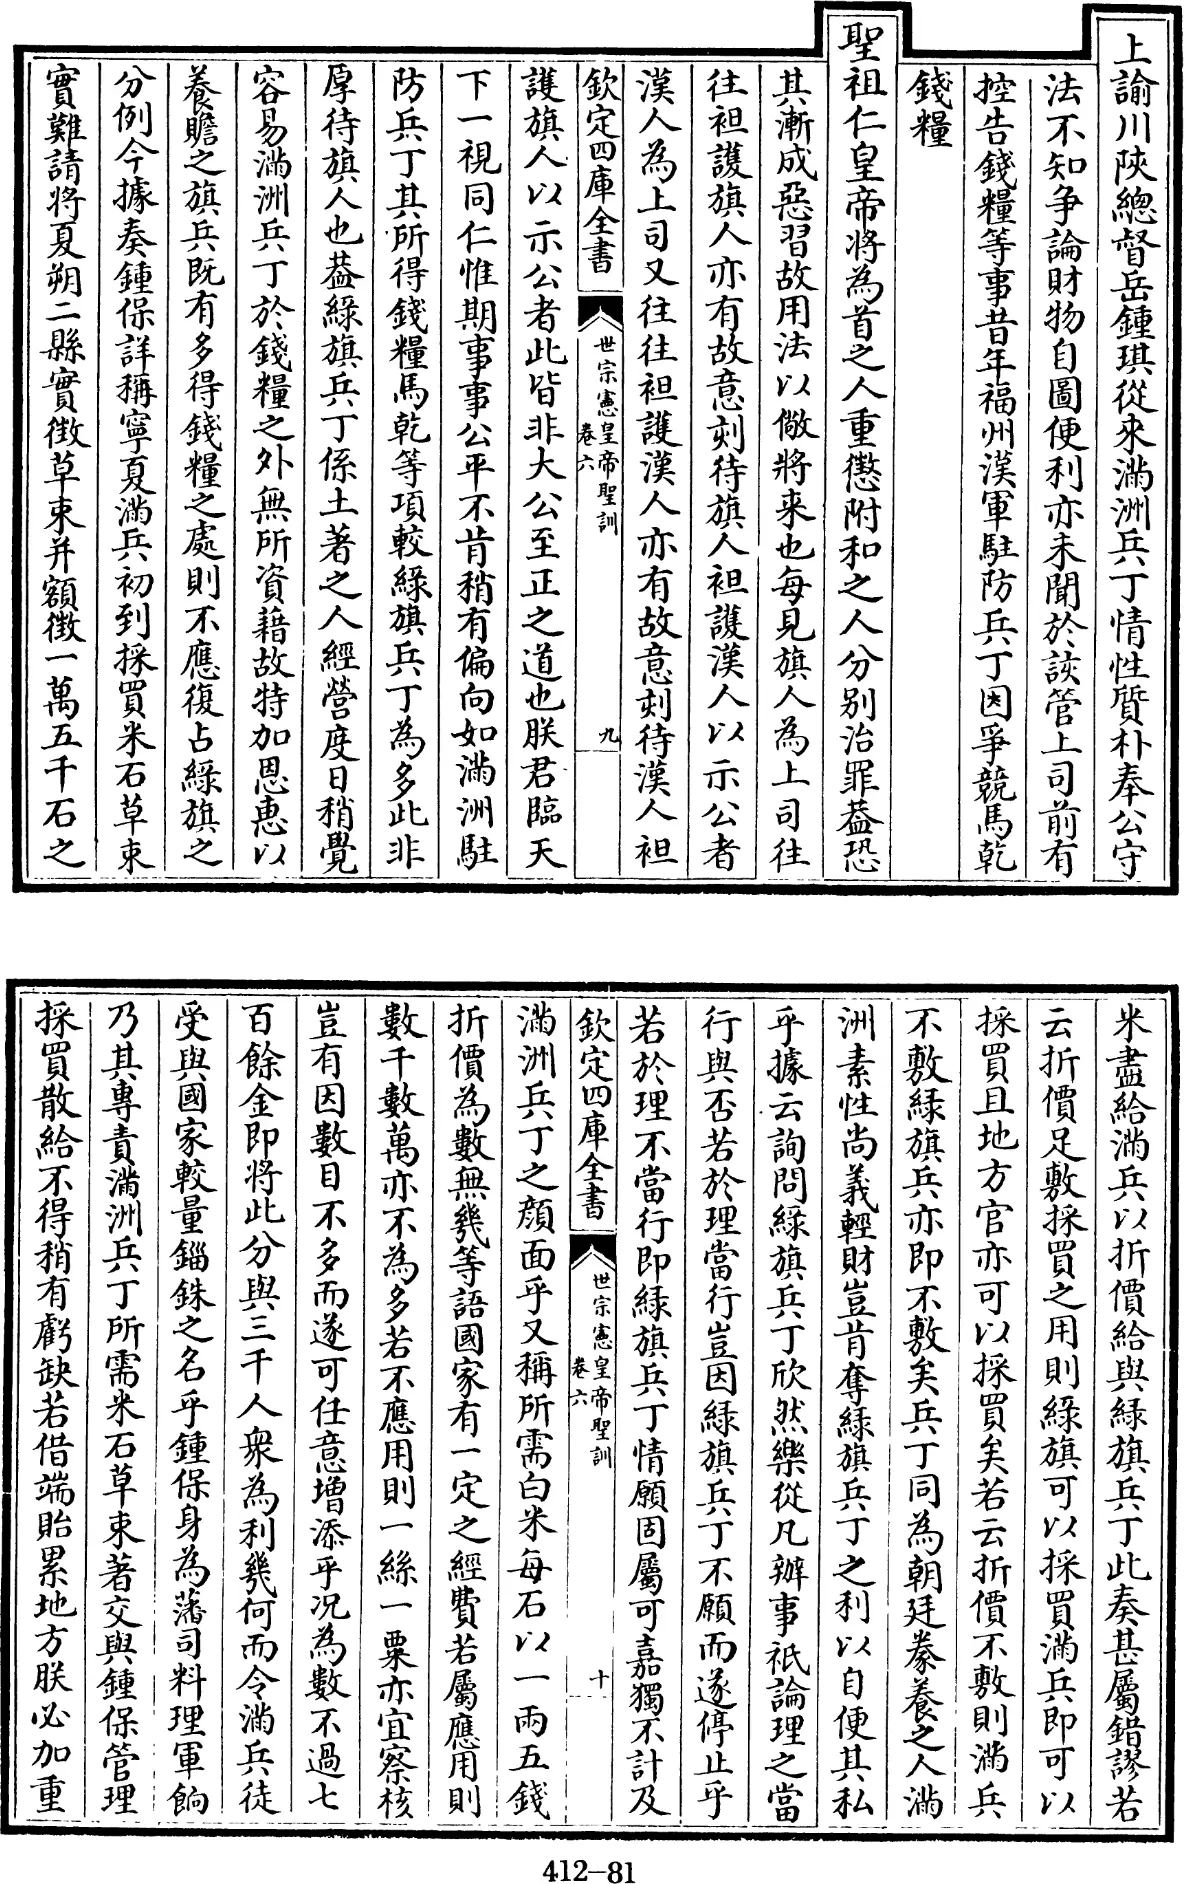 上諭川陜總督岳鍾琪從來滿洲兵丁情性質朴奉公守
法不知争論財物自圖便利亦未聞於該管上司前有
控告錢糧等事昔年福州漢軍駐防兵丁因爭競馬乾
錢糧
聖祖仁皇帝將為首之人重懲附和之人分别治罪葢恐
其漸成惡習故用法以儆將来也每見旗人為上司往
往袒護旗人亦有故意刻待旗人袒護漢人以示公者
漢人為上司又往往袒護漢人亦有故意刻待漢人袒
欽定四庫全書 世宗憲皇帝聖訓 卷六 九
護旗人以示公者此皆非大公至正之道也朕君臨天
下一視同仁惟期事事公平不肯稍有偏向如滿洲駐
防兵丁其所得錢糧馬乾等項較緑旗兵丁為多此非
厚待旗人也葢緑旗兵丁係土著之人經營度日稍覺
容易滿洲兵丁於錢糧之外無所資藉故特加恩惠以
養贍之旗兵既有多得錢糧之處則不應復占緑旗之
分例今據奏鍾保詳稱寧夏滿兵初到採買米石草束
實難請將夏朔二縣實徴草束并額徴一萬五千石之
米盡給滿兵以折價給與緑旗兵丁此奏甚屬錯謬若
云折價足敷採買之用則緑旗可以採買滿兵即可以
採買且地方官亦可以採買矣若云折價不敷則滿兵
不敷緑旗兵亦即不敷矣兵丁同為朝廷豢養之人滿
洲素性尚義輕財豈肯奪緑旗兵丁之利以自便其私
乎據云詢問緑旗兵丁欣然樂從凡辦事祇論理之當
行與否若於理當行豈因緑旗兵丁不願而遂停止乎
若於理不當行即緑旗兵丁情願固屬可嘉獨不計及
欽定四庫全書 世宗憲皇帝聖訓 卷六 十
滿洲兵丁之顔面乎又稱所需白米每石以一兩五錢
折價為數無幾等語國家有一定之經費若屬應用則
數千數萬亦不為多若不應用則一絲一粟亦宜察核
豈有因數目不多而遂可任意增添乎况為數不過七
百餘金即將此分與三千人衆為利幾何而令滿兵徒
受與國家較量錙銖之名乎鍾保身為藩司料理軍餉
乃其專責滿洲兵丁所需米石草束著交與鍾保管理
採買散給不得稍有虧缺若借端貽累地方朕必加重
412-81